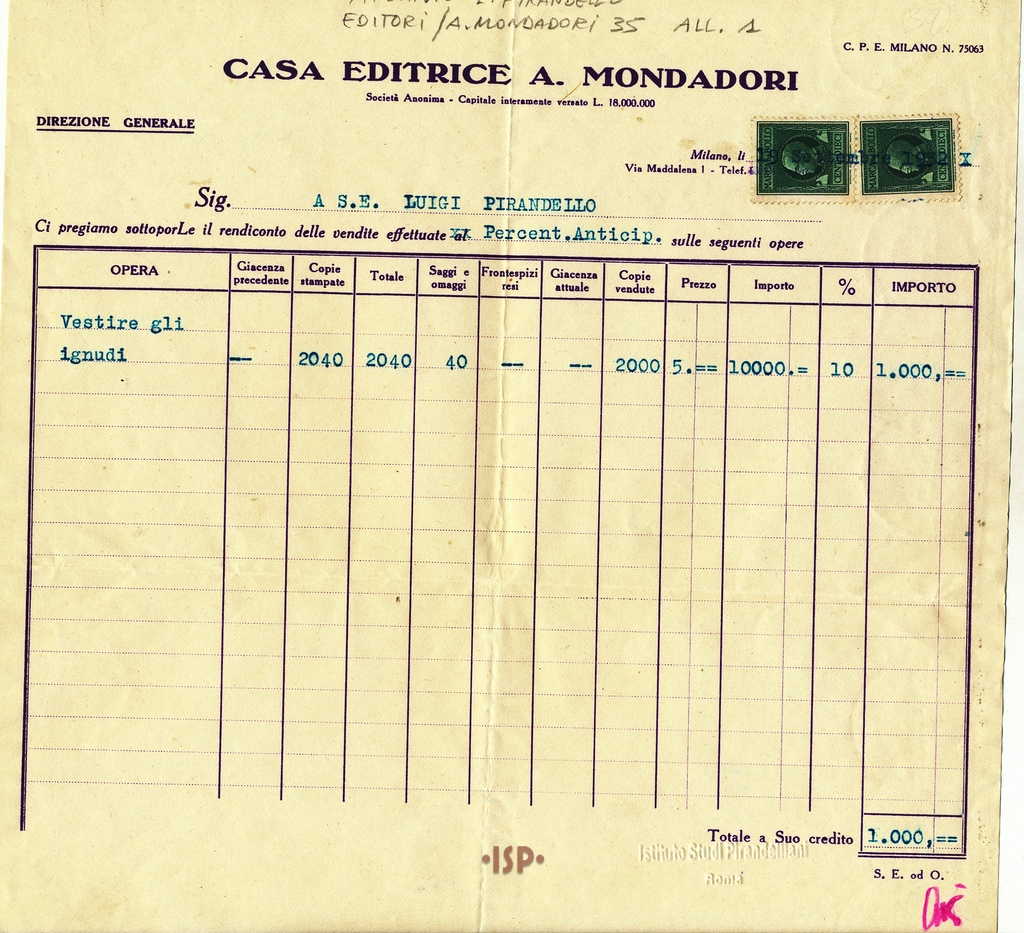 ARCHIVIO L. PIRANDELLO
EDITORI/A. MONDADORI 35 ALL. 1
C. P. E. MILANO N. 75063
CASA EDITRICE A. MONDADORI
Società Anonima - Capitale interamente versato L. 18.000.000
DIREZIONE GENERALE
MARCA DA BOLLO CENT. DIECI MARCA DA BOLLO CENT. DIECI
Milano, li 19 Settembre 1932 X
Via Maddalena 1 - Telef.
Sig. A S.E. LUIGI PIRANDELLO
Ci pregiamo sottoporLe il rendiconto delle vendite effettuate al Percent.Anticip. sulle seguenti opere
OPERA Giacenza precedente Copie stampate Totale Saggi e omaggi Frontespizi resi Giacenza attuale Copie vendute Prezzo Importo % IMPORTO
Vestire gli
ignudi -- 2040 2040 40 -- -- 2000 5.== 10000.= 10 1.000,==
Totale a Suo credito 1.000,==
•ISP•
Istituto Studi Pirandelliani
Roma
S. E. od O.